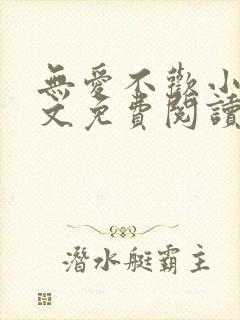 無愛不歡小
文免費閱讀
潛水艇霸主